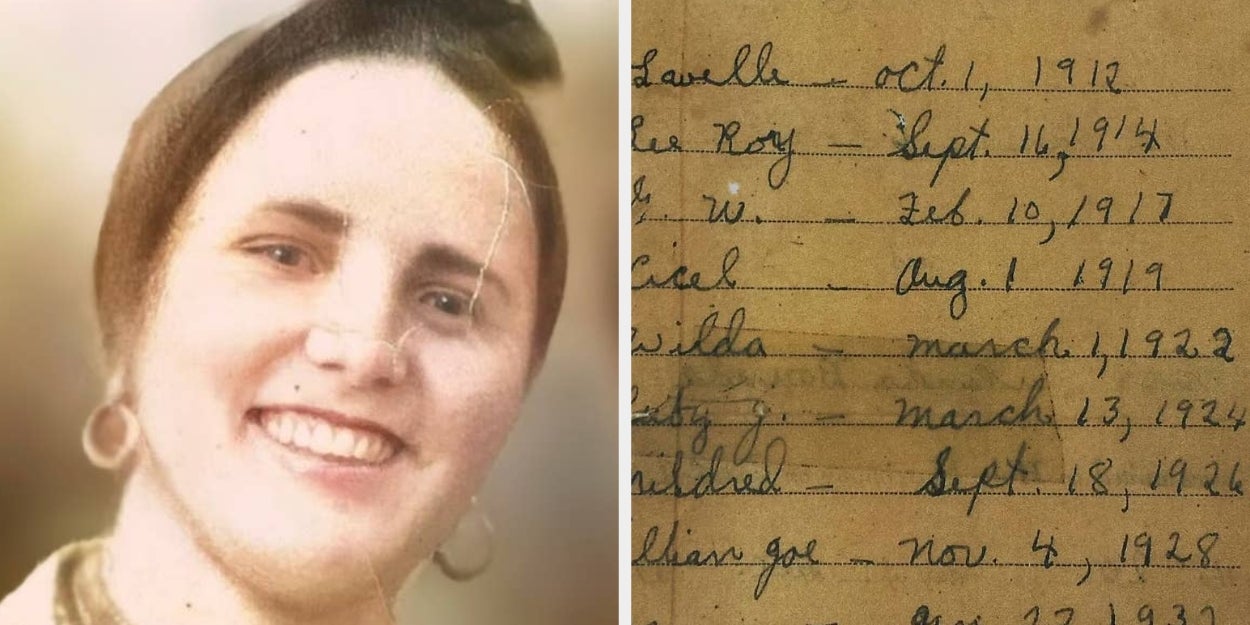 Lavelle — oct. 1, 1912
Lee Roy — Sept. 16, 1914
W. — Feb. 10, 1917
— Aug. 1 1919
Wilda — march 1, 1922
J. — march 13, 1924
mildred — Sept. 18, 1926
joe — nov. 4, 1928